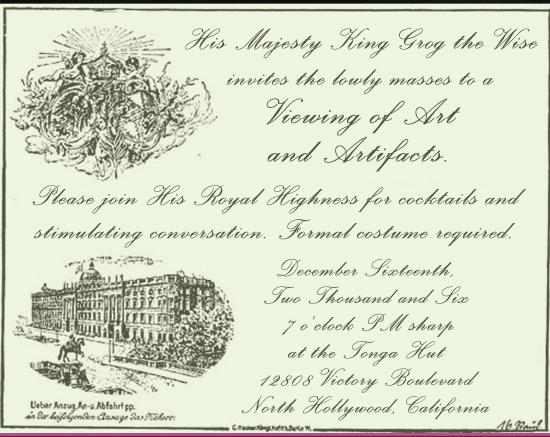 His Majesty King Grog the Wise
invites the lowly masses to a
Viewing of Art
and Artifacts.
Please join His Royal Highness for cocktails and
stimulating conversation. Formal costume required.
December Sixteenth,
Two Thousand and Six
7 o'clock PM sharp
at the Tonga Hut
12808 Victory Boulevard
North Hollywood, California
Ueber Anzug, An-u. Abfahrt pp.
in der beifolgenden Ansage das Nähere.